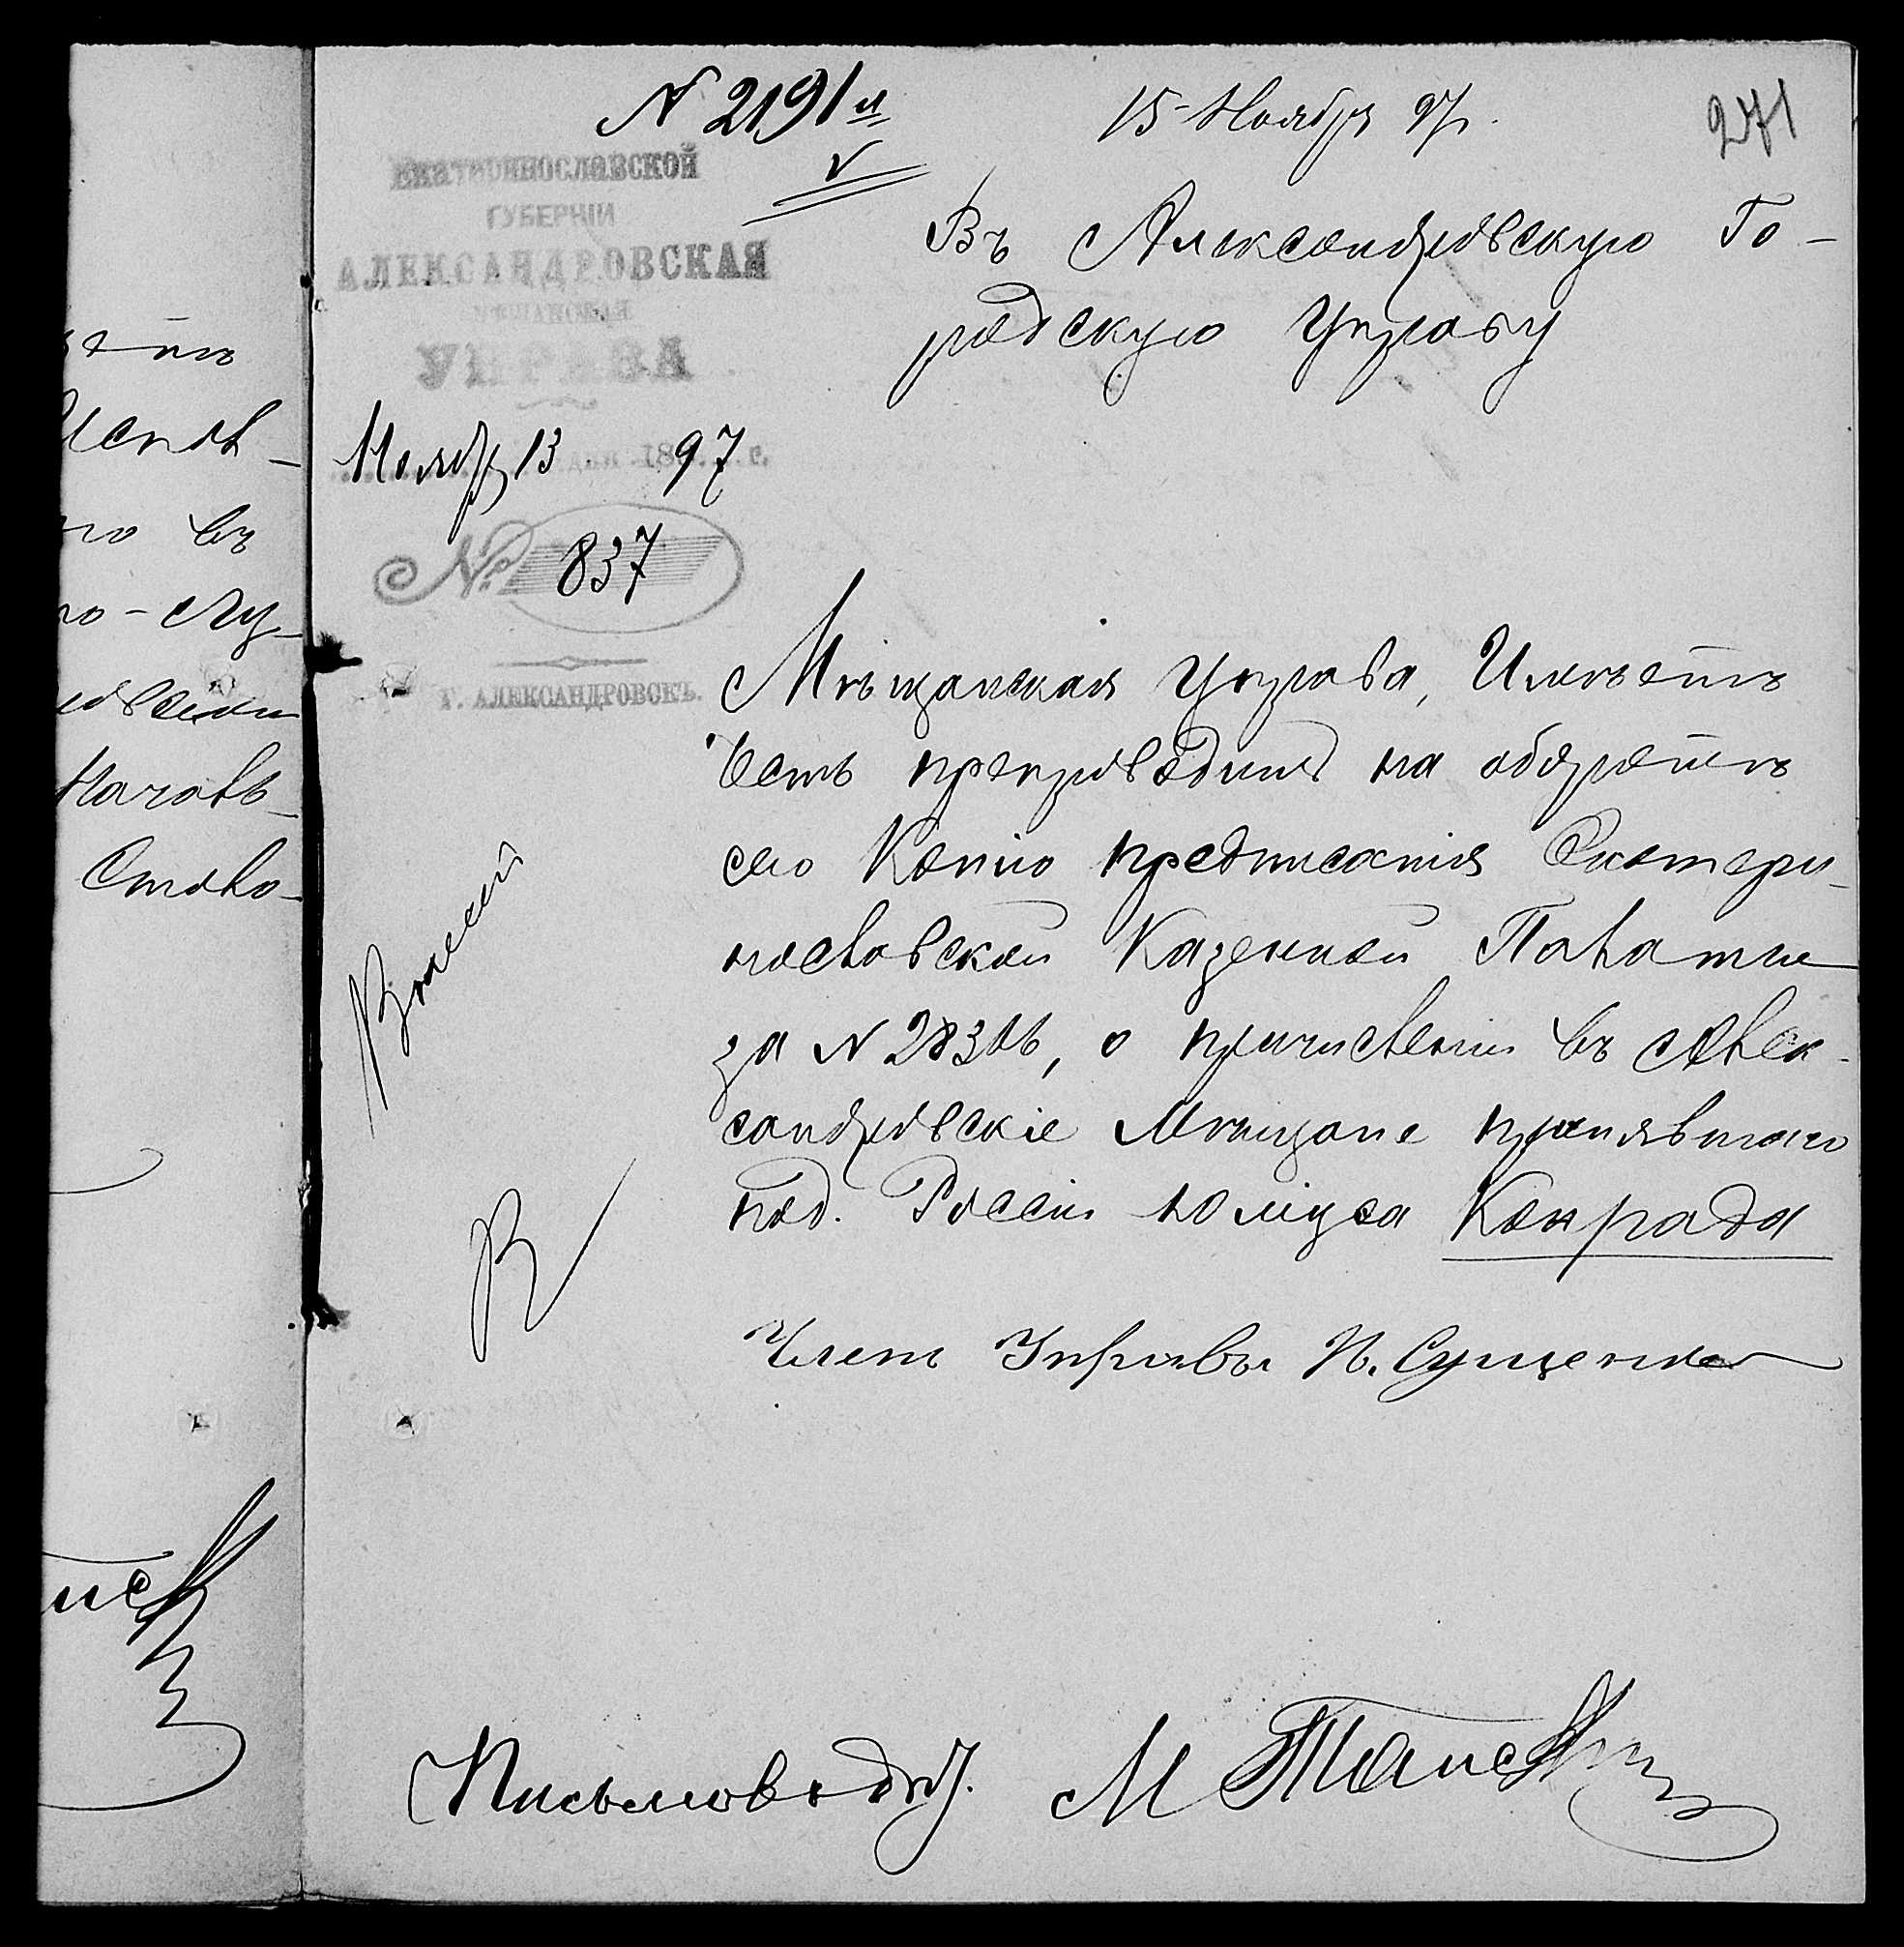 N 2191 и
15 Ноября 97.
271
ЕКАТЕРИНОСЛАВСКОЙ
ГУБЕРНІИ
АЛЕКСАНДРОВСКАЯ
МѢЩАНСКАЯ
УПРАВА
Ноябр 13 97
№ 837
Г. АЛЕКСАНДРОВСКЪ.
Въ Александровскую Го-
родскую Управу
Мѣщанская Управа, Имѣетъ
честь препроводить на оборотѣ
сего Копію предписанія Екатери-
нославской Казенной Палаты
за N 28386, о причисленіи въ Алек-
сандровскіе Мѣщане принявшаго
под. Россіи Юліуса Конрада
Членъ Управы И. Сущенко
Письмовод.
въ
Лу-